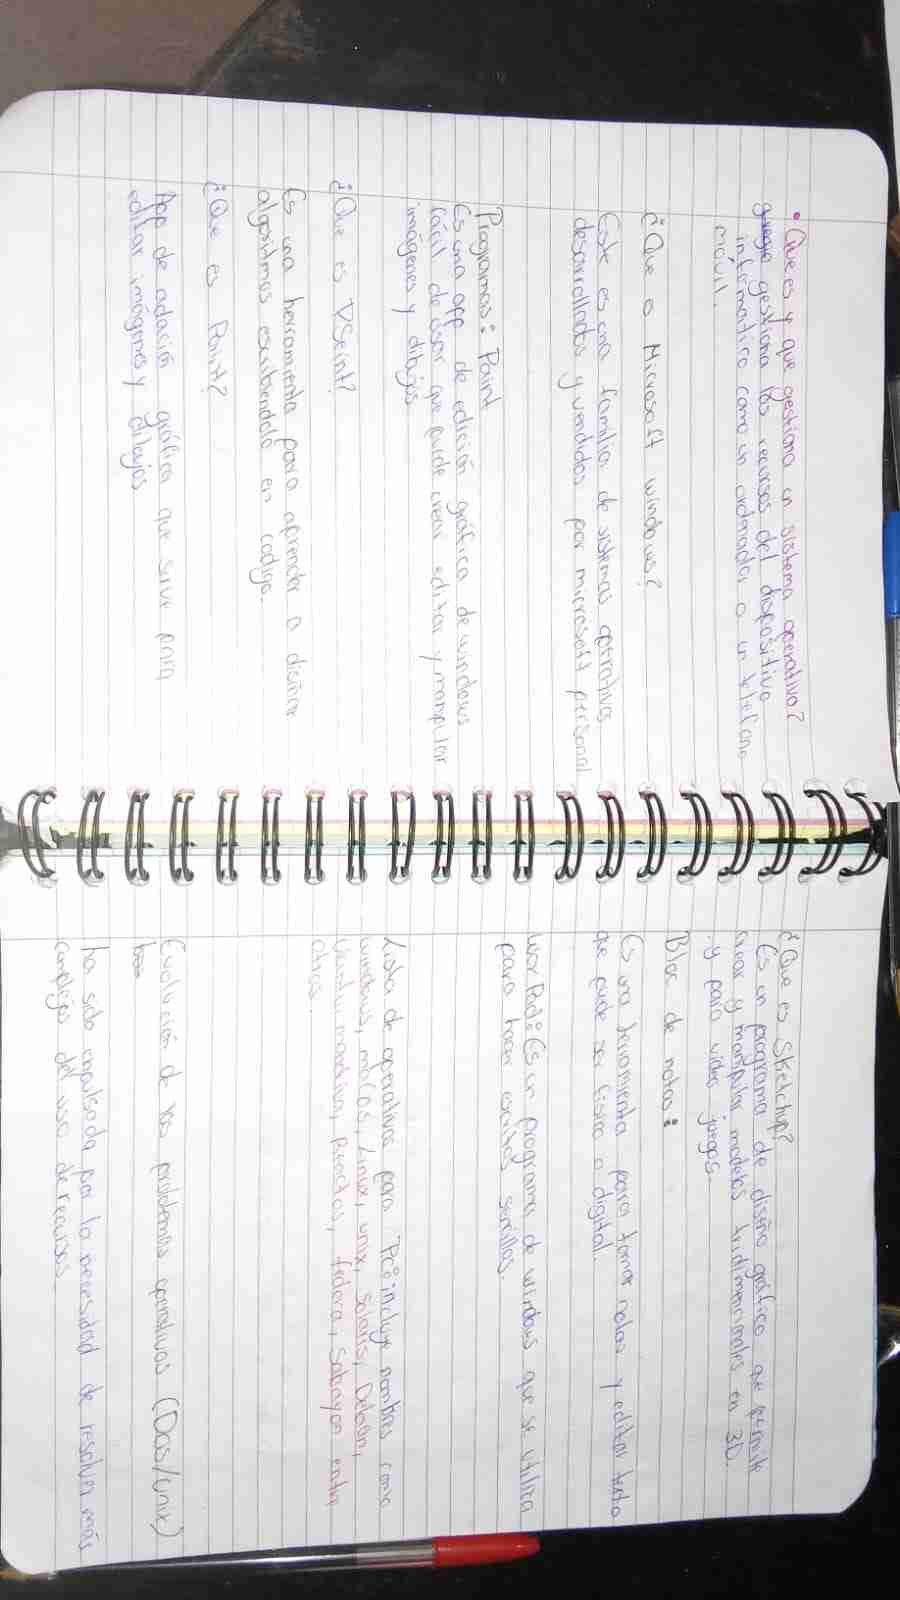 • Que es y que gestiona un sistema operativo?
gestiona los recursos del dispositivo
informatico como un ordenador o un telefono
móvil.
¿Que o Microsoft windows?
Este es una familia de sistemas operativos
desarrollados y vendidos por microsoft personal
Programas: Paint
Es una app de edición gráfica de windows
fácil de usar que puede crear editar y manipular
imágenes y dibujos
¿Que es PSeint?
Es una herramienta para aprender a diseñar
algoritmos escribiendolo en codigo.
¿Que es Paint?
App de edición gráfica que sirve para
editar imágenes y dibujos
¿Que es Sketchup?
Es un programa de diseño gráfico que permite
crear y manipular modelos tridimencionales en 3D
y para video juegos.
Bloc de notas:
Es una herramienta para tomar notas y editar texto
que puede ser fisico o digital.
WordPad: Es un programa de windows que se utiliza
para hacer escritos sencillos.
Lista de operativos para Pc: incluye nombres como
windows, macos, Linux, unix, solaris, Debian,
mandriva, Reactos, fedora, sabayon entre
otros.
Evolución de los problemas operativos (Dos/unix)
ha sido impulsada por la necesidad de resolver más
complejos del uso de recursos.